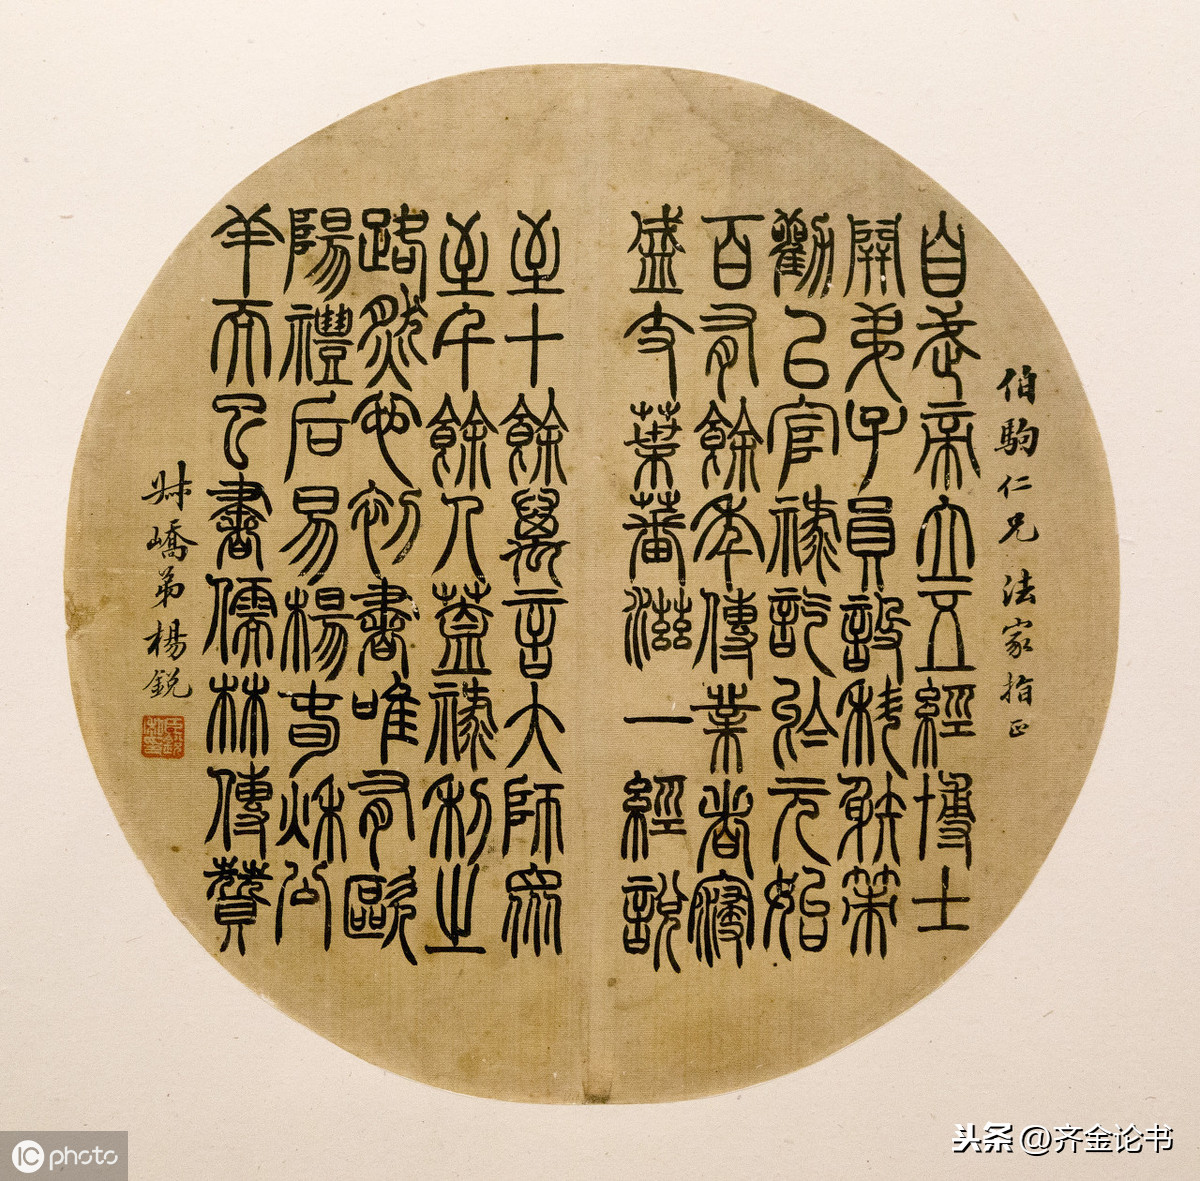 伯駒仁兄法家指正
自武帝立五經博士
開弟子員設科射策
勸以官祿訖於元始
百有餘年傳業者寖
盛支葉蕃滋一經說
至十餘萬言大師眾
至千餘人蓋祿利之
路然也初書唯有歐
陽禮后易楊春秋公
羊而已書儒林傳贊
叔嶠弟楊銳
头条 @齐金论书
IC photo